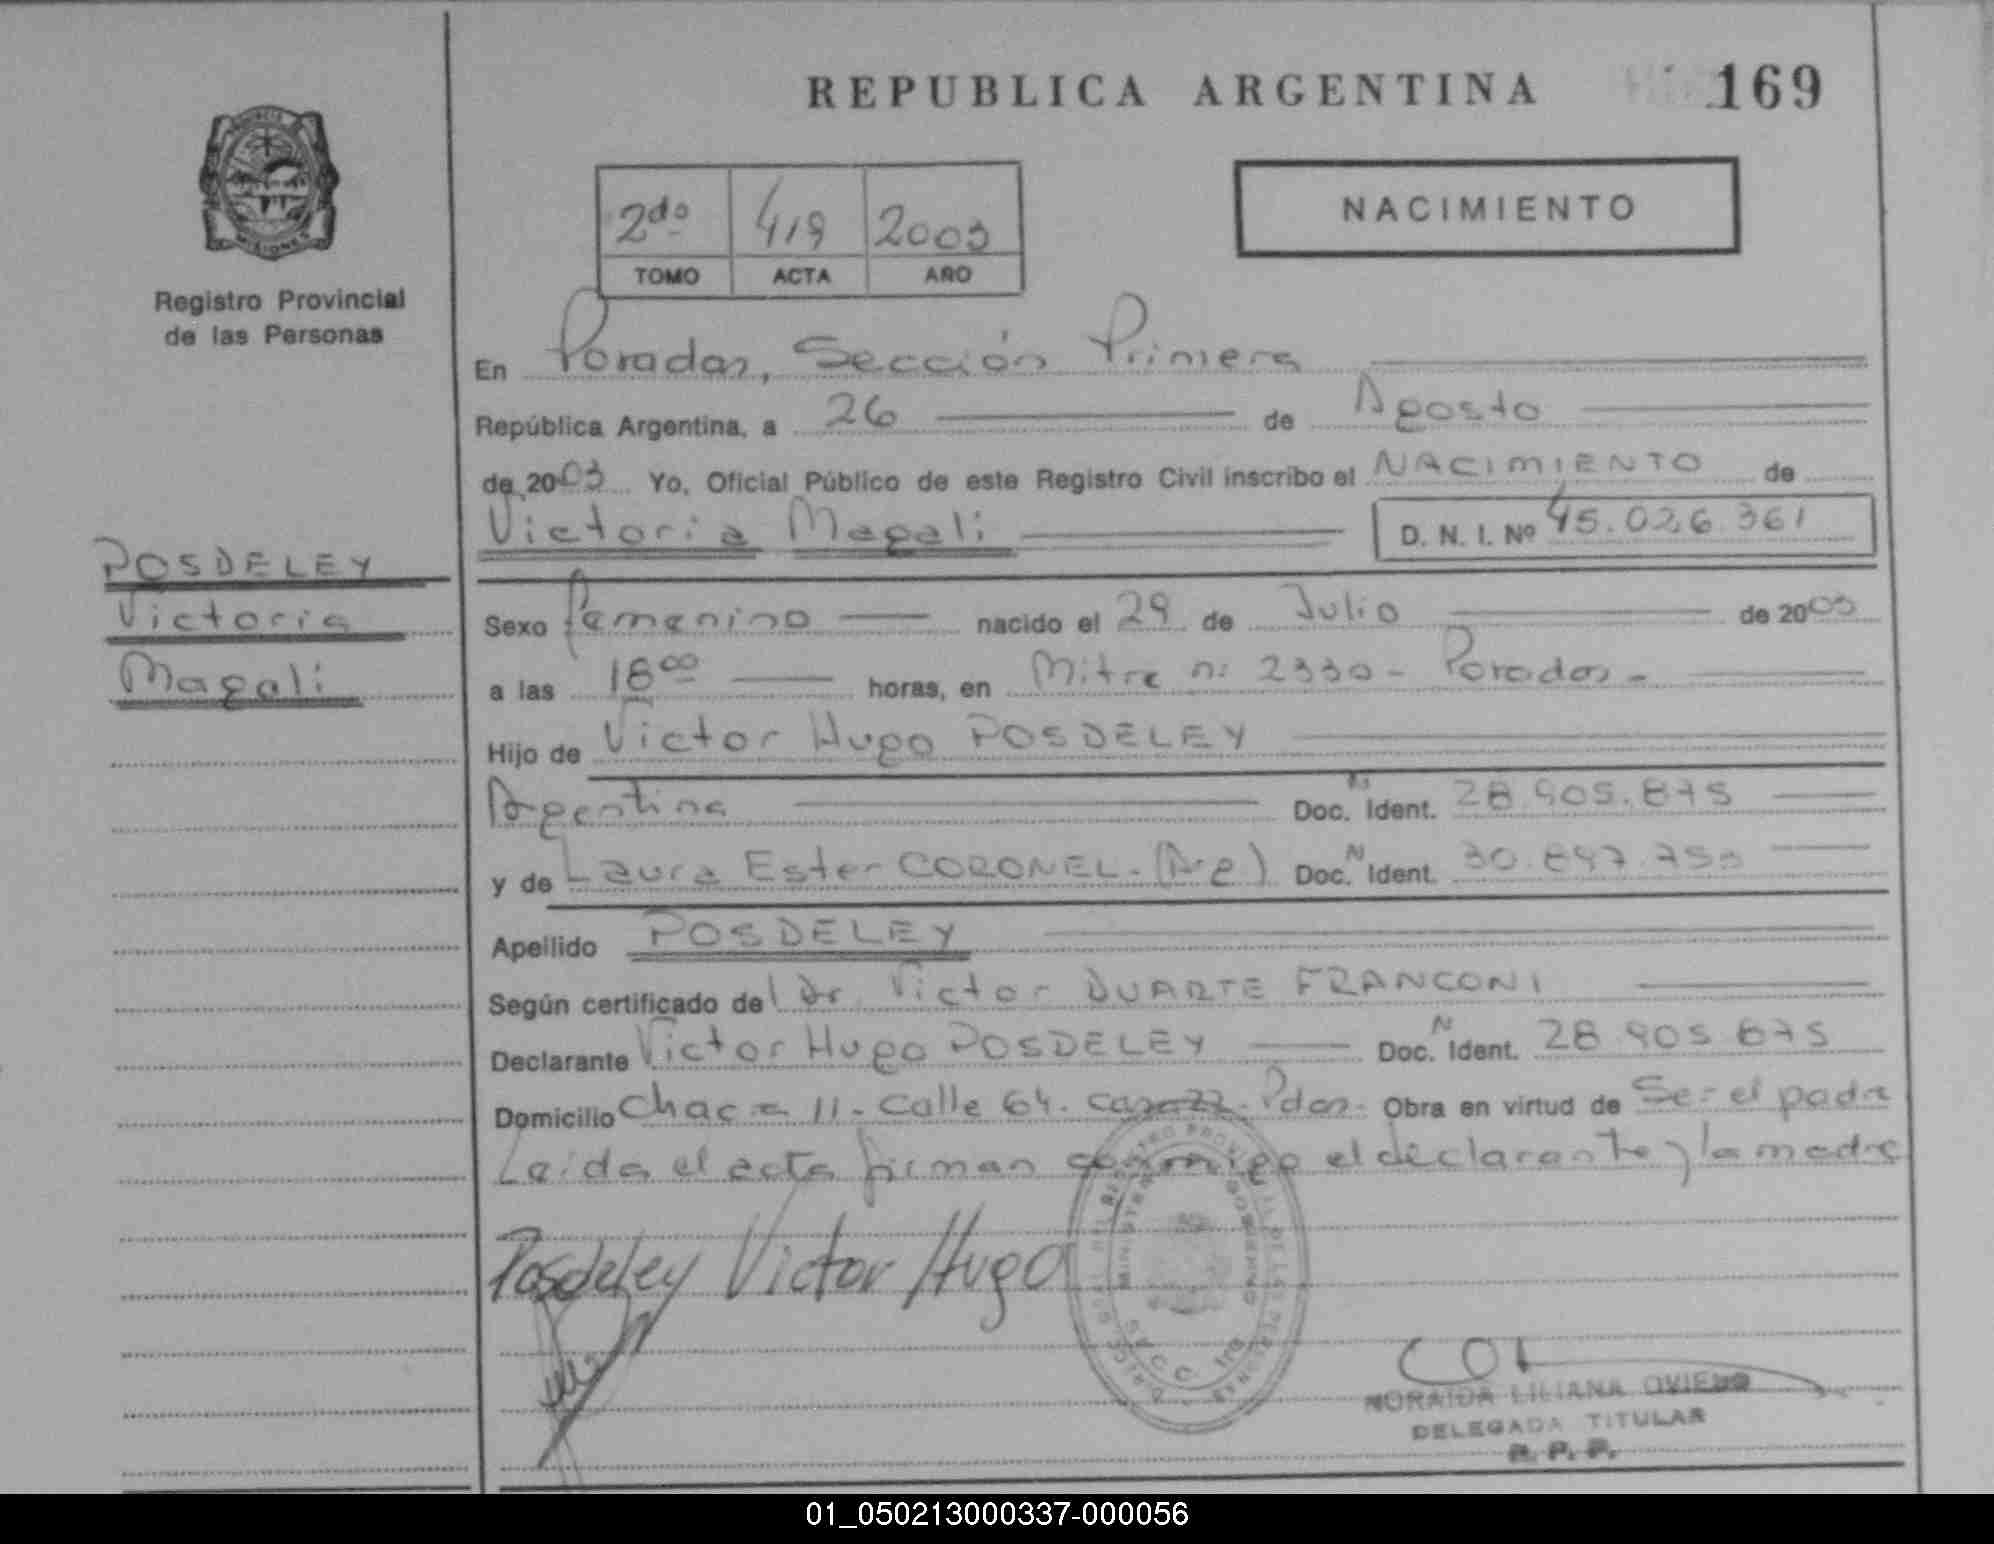 REPUBLICA ARGENTINA 169
2do 419 2003
TOMO ACTA AÑO
NACIMIENTO
PROVINCIA
MISIONES
Registro Provincial
de las Personas
POSDELEY
Victoria
Magali
En Posadas, Sección Primera
República Argentina, a 26 de Agosto
de 2003 Yo, Oficial Público de este Registro Civil inscribo el NACIMIENTO de
Victoria Magali D. N. I. Nº 45.026.361
Sexo femenino nacido el 29 de Julio de 2003
a las 18 00 horas, en Mitre nº 2330 - Posadas -
Hijo de Victor Hugo POSDELEY
Argentina Doc. N Ident. 28.905.875
y de Laura Ester CORONEL - (Arg) Doc. N Ident. 30.897.753
Apellido POSDELEY
Según certificado del Dr. Victor DUARTE FRANCONI
Declarante Victor Hugo POSDELEY Doc. N Ident. 28.905.875
Domicilio Chacra 11 - Calle 64 - casa 22 - Pdas - Obra en virtud de Ser el padre
Leida el acta firman conmigo el declarante y la madre
Posdeley Victor Hugo
NORAIDA LILIANA OVIEDO
DELEGADA TITULAR
R. P. P.
01_050213000337-000056